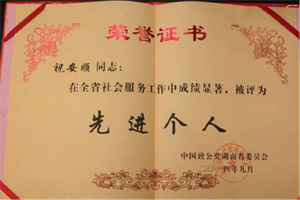 荣誉证书
祝安顺 同志：
在全省社会服务工作中成绩显著，被评为
先进个人
中国致公党湖南省委员会
二〇一四年九月